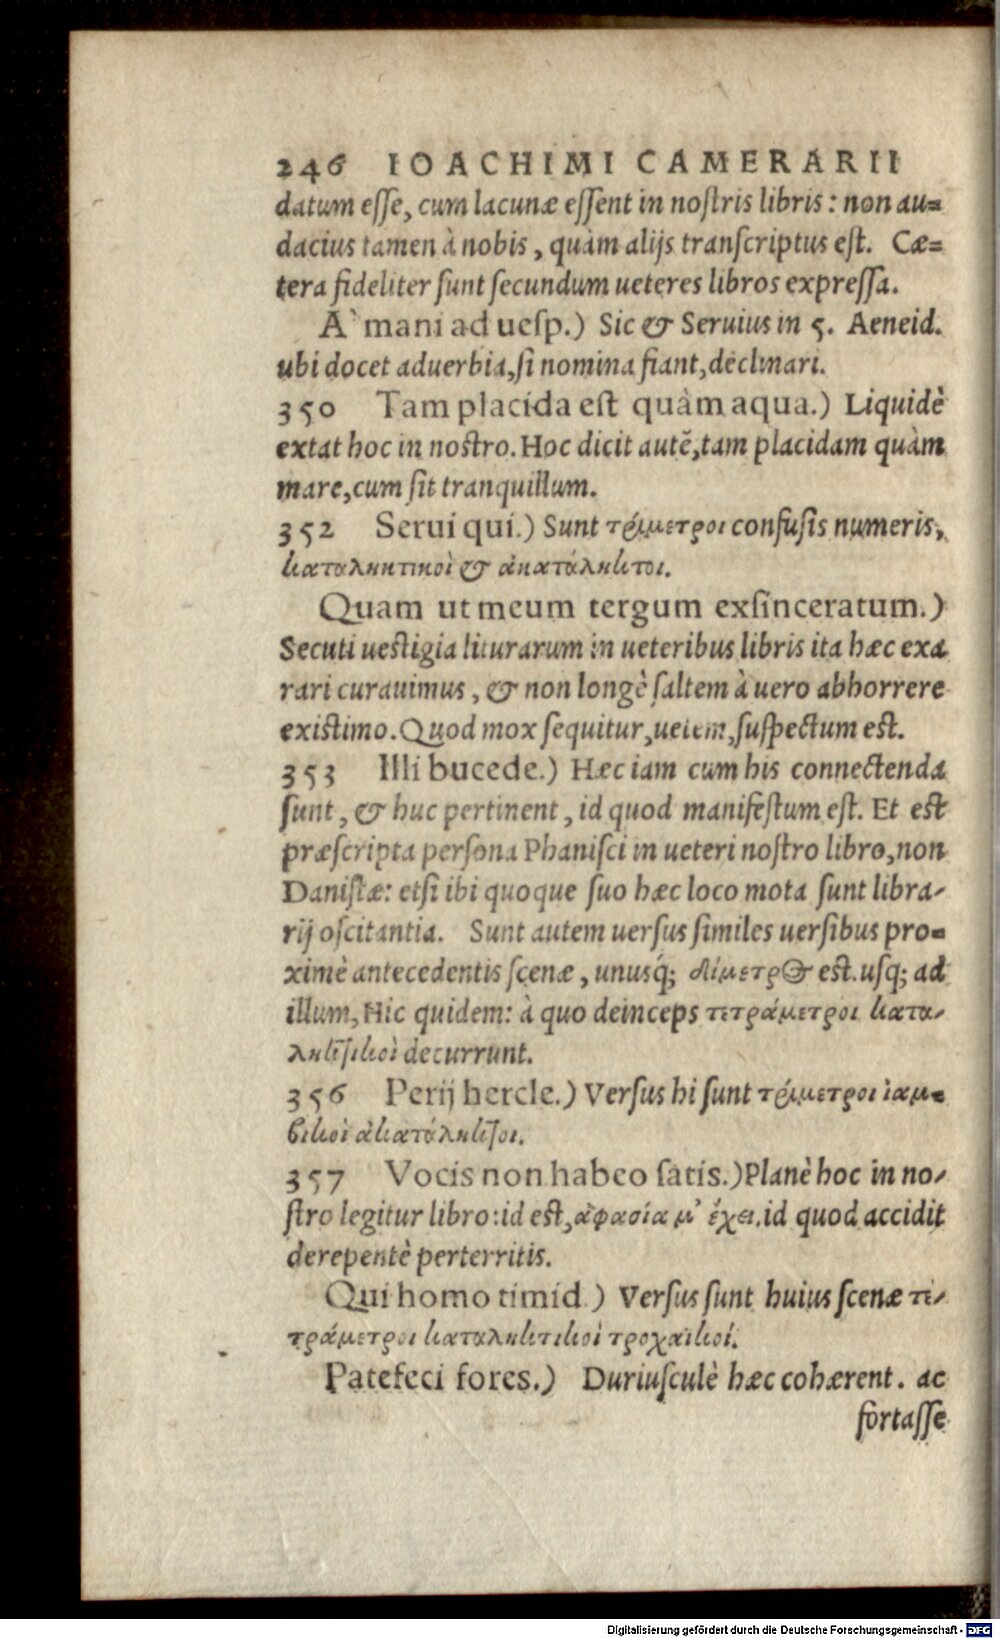 246 IOACHIMI CAMERARII
datum esse, cum lacunæ essent in nostris libris: non au=
dacius tamen à nobis, quàm alijs transcriptus est. Cæ=
tera fideliter sunt secundum ueteres libros expressa.
A` mani ad uesp.) Sic & Seruius in 5. Aeneid.
ubi docet aduerbia, si nomina fiant, declinari.
350 Tam placida est quàm aqua.) Liquidè
extat hoc in nostro. Hoc dicit autẽ, tam placidam quàm
mare, cum sit tranquillum.
352 Serui qui.) Sunt τρίμετροι confusis numeris,
καταληκτικοὶ & ἀκατάληκτοι.
Quam ut meum tergum exsinceratum.)
Secuti uestigia liturarum in ueteribus libris ita hæc exa
rari curauimus, & non longè saltem à uero abhorrere
existimo. Quod mox sequitur, uetem, suspectum est.
353 Illi bucede.) Hæc iam cum his connectenda
sunt, & huc pertinent, id quod manifestum est. Et est
præscripta persona Phanisci in ueteri nostro libro, non
Danistæ: etsi ibi quoque suo hæc loco mota sunt libra-
rij oscitantia. Sunt autem uersus similes uersibus pro=
ximè antecedentis scenæ, unusq́; δίμετρος est. usq; ad
illum, Hic quidem: à quo deinceps τετράμετροι κατα-
ληκτικοὶ decurrunt.
356 Perij hercle.) Versus hi sunt τρίμετροι ἰαμ=
βικοὶ ἀκατάληκτοι.
357 Vocis non habeo satis.) Planè hoc in no-
stro legitur libro: id est, ἀφασία μ' ἔχει. id quod accidit
derepentè perterritis.
Qui homo timid.) Versus sunt huius scenæ τε-
τράμετροι καταληκτικοὶ τροχαϊκοί.
Patefeci fores.) Duriusculè hæc cohærent. ac
fortasse
Digitalisierung gefördert durch die Deutsche Forschungsgemeinschaft - DFG